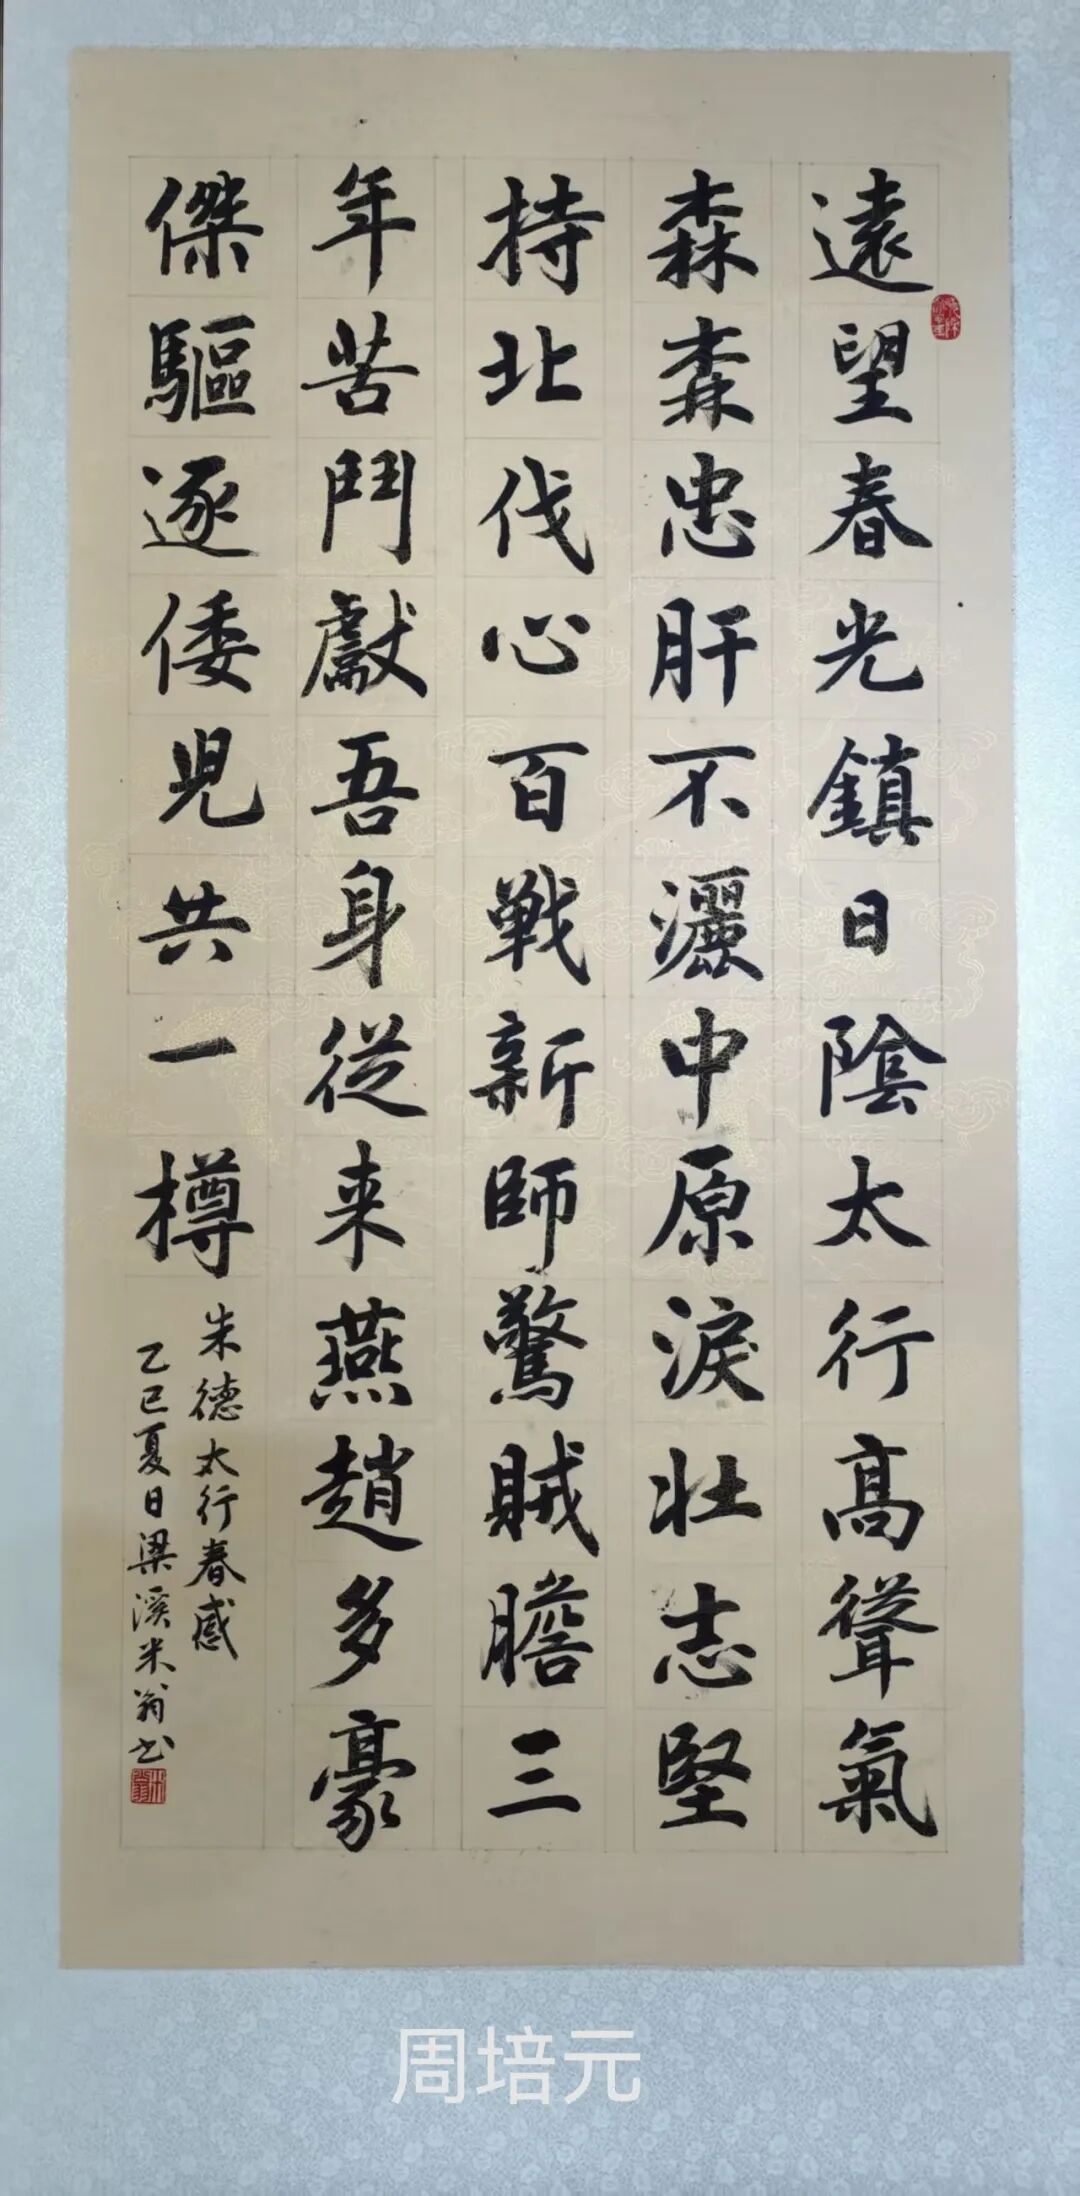 遠望春光鎮日陰太行髙聳氣
森森忠肝不灑中原淚壯志堅
持北伐心百戦新師驚賊膽三
年苦鬥獻吾身従来燕趙多豪
傑驅逐倭兒共一樽
朱德太行春感
乙巳夏日梁溪米翁书
米翁
周培元